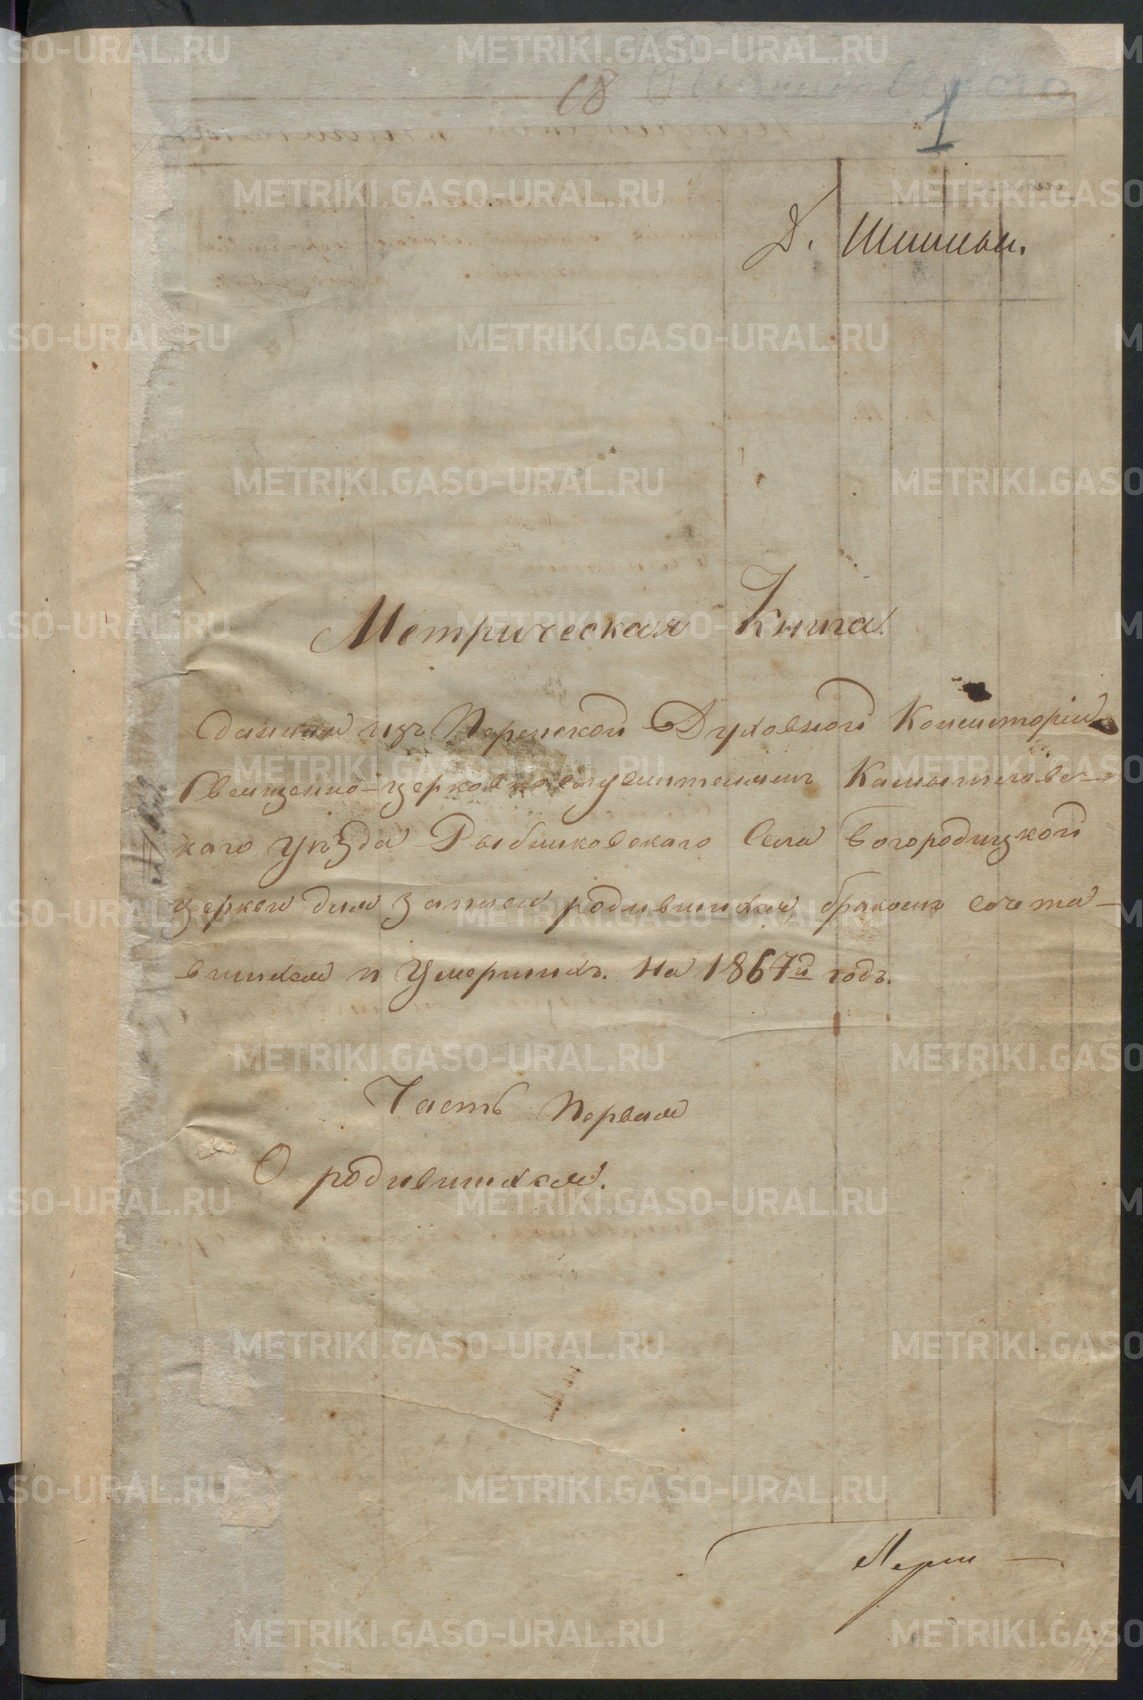 18
1
Д. Шиши.
Метрическая Книга.
данная изъ Пермской Духовной Консисторіи
Священно-церковнослужителямъ Камышловс-
каго Уѣзда Рыбниковскаго Села Богородицкой
церкви для записи родившихся, бракомъ сочета-
вшихся и Умершихъ. На 1867й годъ.
Часть Первая
О родившихся.
METRIKI.GASO-URAL.RU